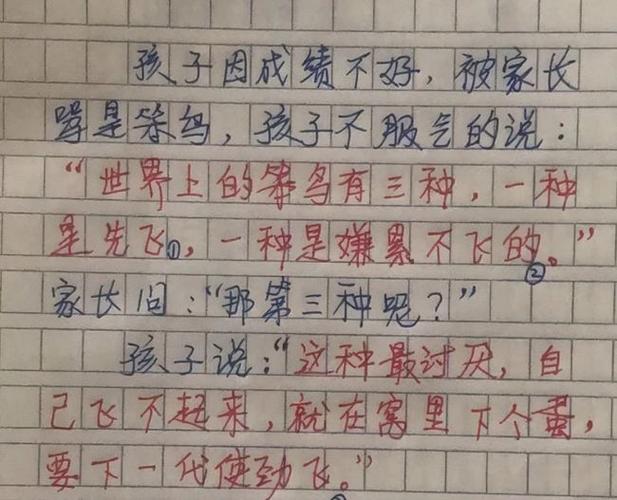 孩子因成绩不好，被家长
骂是笨鸟，孩子不服气的说：
“世界上的笨鸟有三种，一种
是先飞①，一种是嫌累不飞的。”②
家长问：“那第三种呢？”
孩子说：“这种最讨厌，自
己飞不起来，就在窝里下个蛋，
要下一代使劲飞。”